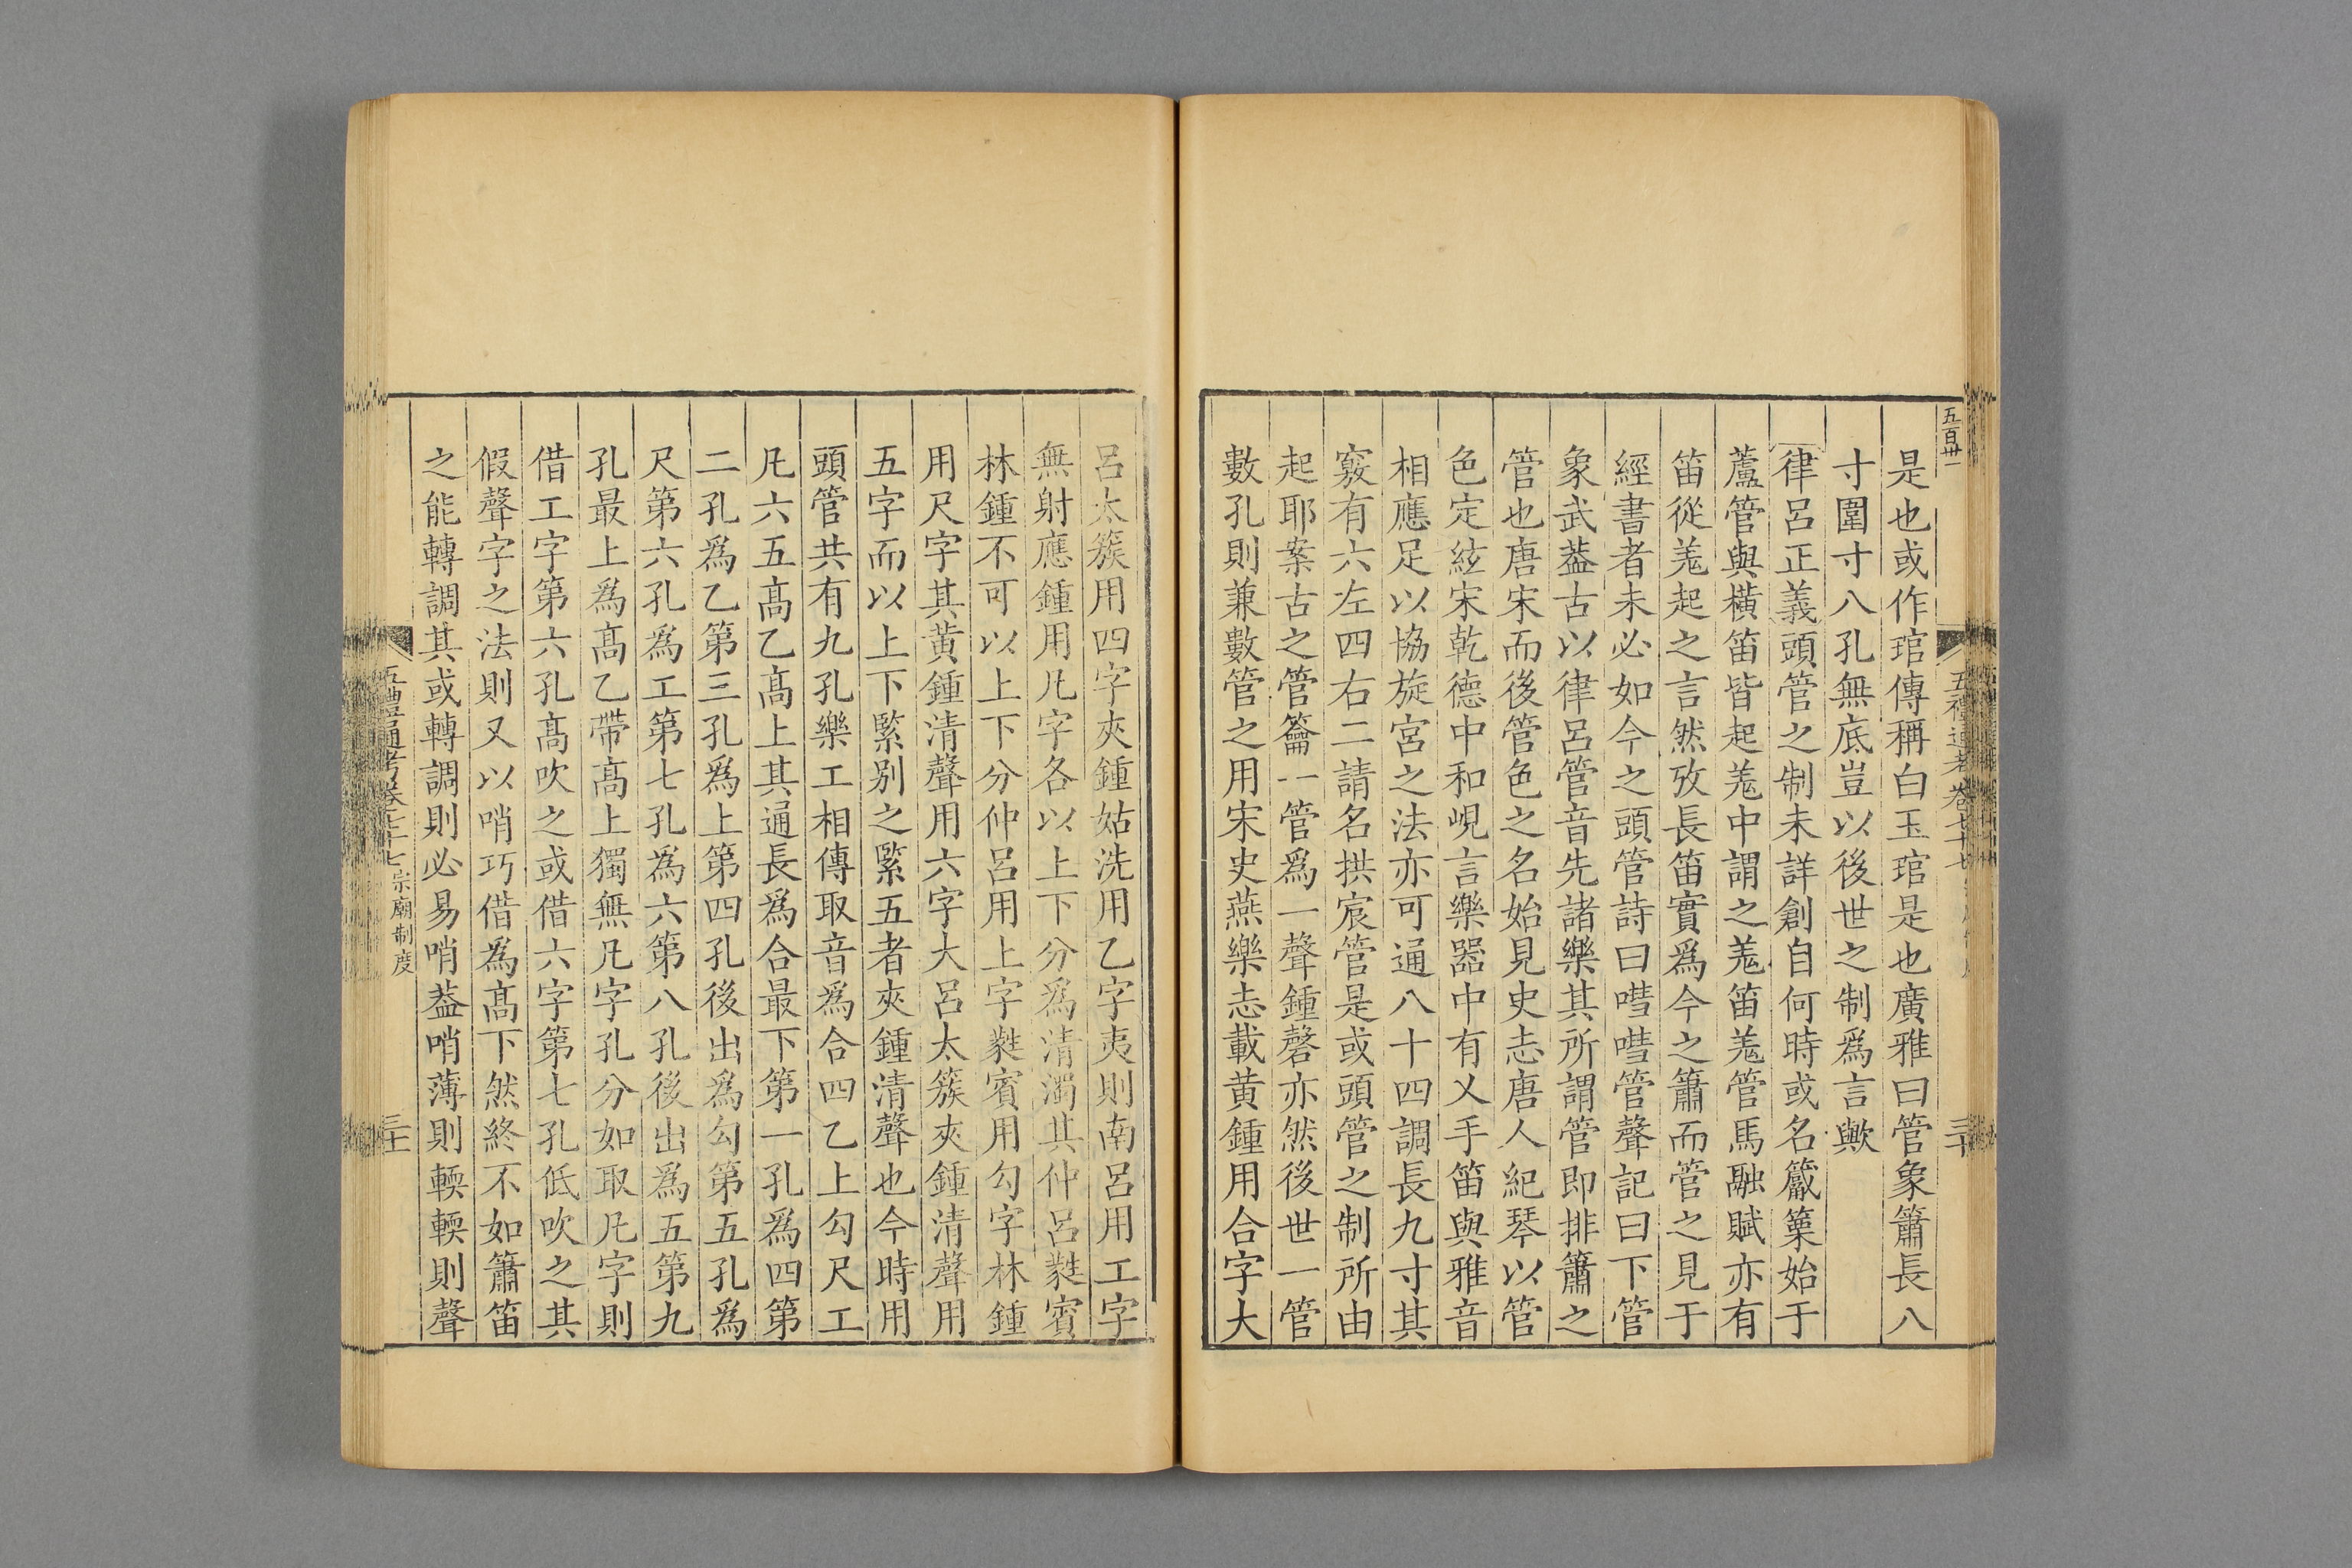 五百卅一
五禮通考卷七十七
三十
是也或作琯傳稱白玉琯是也廣雅曰管象簫長八
寸圍寸八孔無底豈以後世之制爲言歟
律呂正義頭管之制未詳創自何時或名籈篥始于
蘆管與橫笛皆起羗中謂之羗笛羗管馬融賦亦有
笛從羗起之言然攷長笛實爲今之簫而管之見于
經書者未必如今之頭管詩曰嘒嘒管聲記曰下管
象武葢古以律呂管音先諸樂其所謂管即排簫之
管也唐宋而後管色之名始見史志唐人紀琴以管
色定絃宋乾德中和峴言樂器中有乂手笛與雅音
相應足以協旋宮之法亦可通八十四調長九寸其
竅有六左四右二請名拱宸管是或頭管之制所由
起耶案古之管籥一管爲一聲鍾磬亦然後世一管
數孔則兼數管之用宋史燕樂志載黃鍾用合字大
呂太簇用四字夾鍾姑洗用乙字夷則南呂用工字
無射應鍾用凡字各以上下分爲清濁其仲呂蕤賓
林鍾不可以上下分仲呂用上字蕤賓用勾字林鍾
用尺字其黃鍾清聲用六字大呂太簇夾鍾清聲用
五字而以上下緊别之緊五者夾鍾清聲也今時用
頭管共有九孔樂工相傳取音爲合四乙上勾尺工
凡六五髙乙髙上其通長爲合最下第一孔爲四第
二孔爲乙第三孔爲上第四孔後出爲勾第五孔爲
尺第六孔爲工第七孔爲六第八孔後出爲五第九
孔最上爲髙乙帶髙上獨無凡字孔分如取凡字則
借工字第六孔髙吹之或借六字第七孔低吹之其
假聲字之法則又以哨巧借爲髙下然終不如簫笛
之能轉調其或轉調則必易哨葢哨薄則輭輭則聲
五禮通考卷七十七 宗廟制度